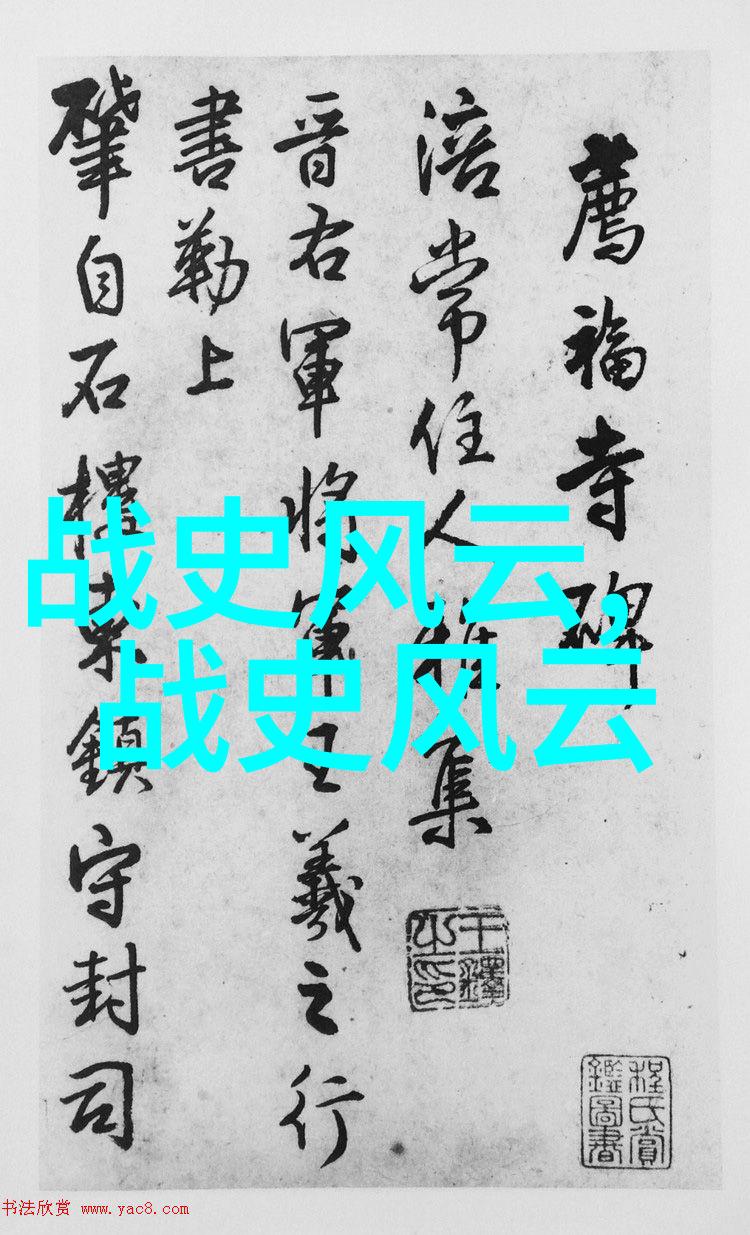 薦福寺碑
涪常住人集
晉右軍將軍王羲之行
書勒上
肇自石樓東鎮守封司
战史风云,
战史风云
王鐸之印
程氏賞鑑圖書
书法欣赏 www.yac8.com